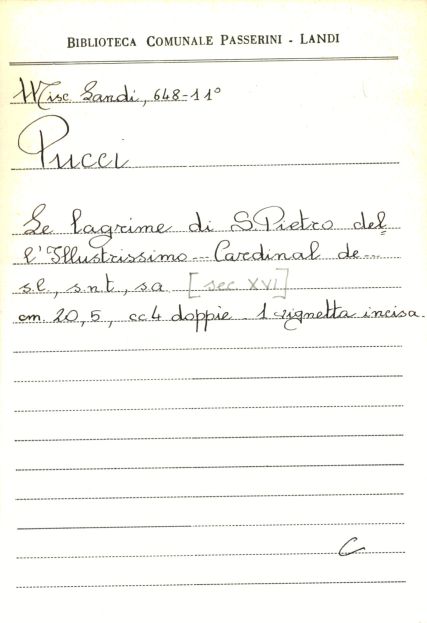 BIBLIOTECA COMUNALE PASSERINI - LANDI
Misc. Landi, 648-11°
Pucci
Le lagrime di S. Pietro del=
l'Illustrissimo --- Cardinal de---
s.l., s.n.t., s.a. [sec XVI]
cm. 20,5, cc 4 doppie. 1 vignetta incisa.
C